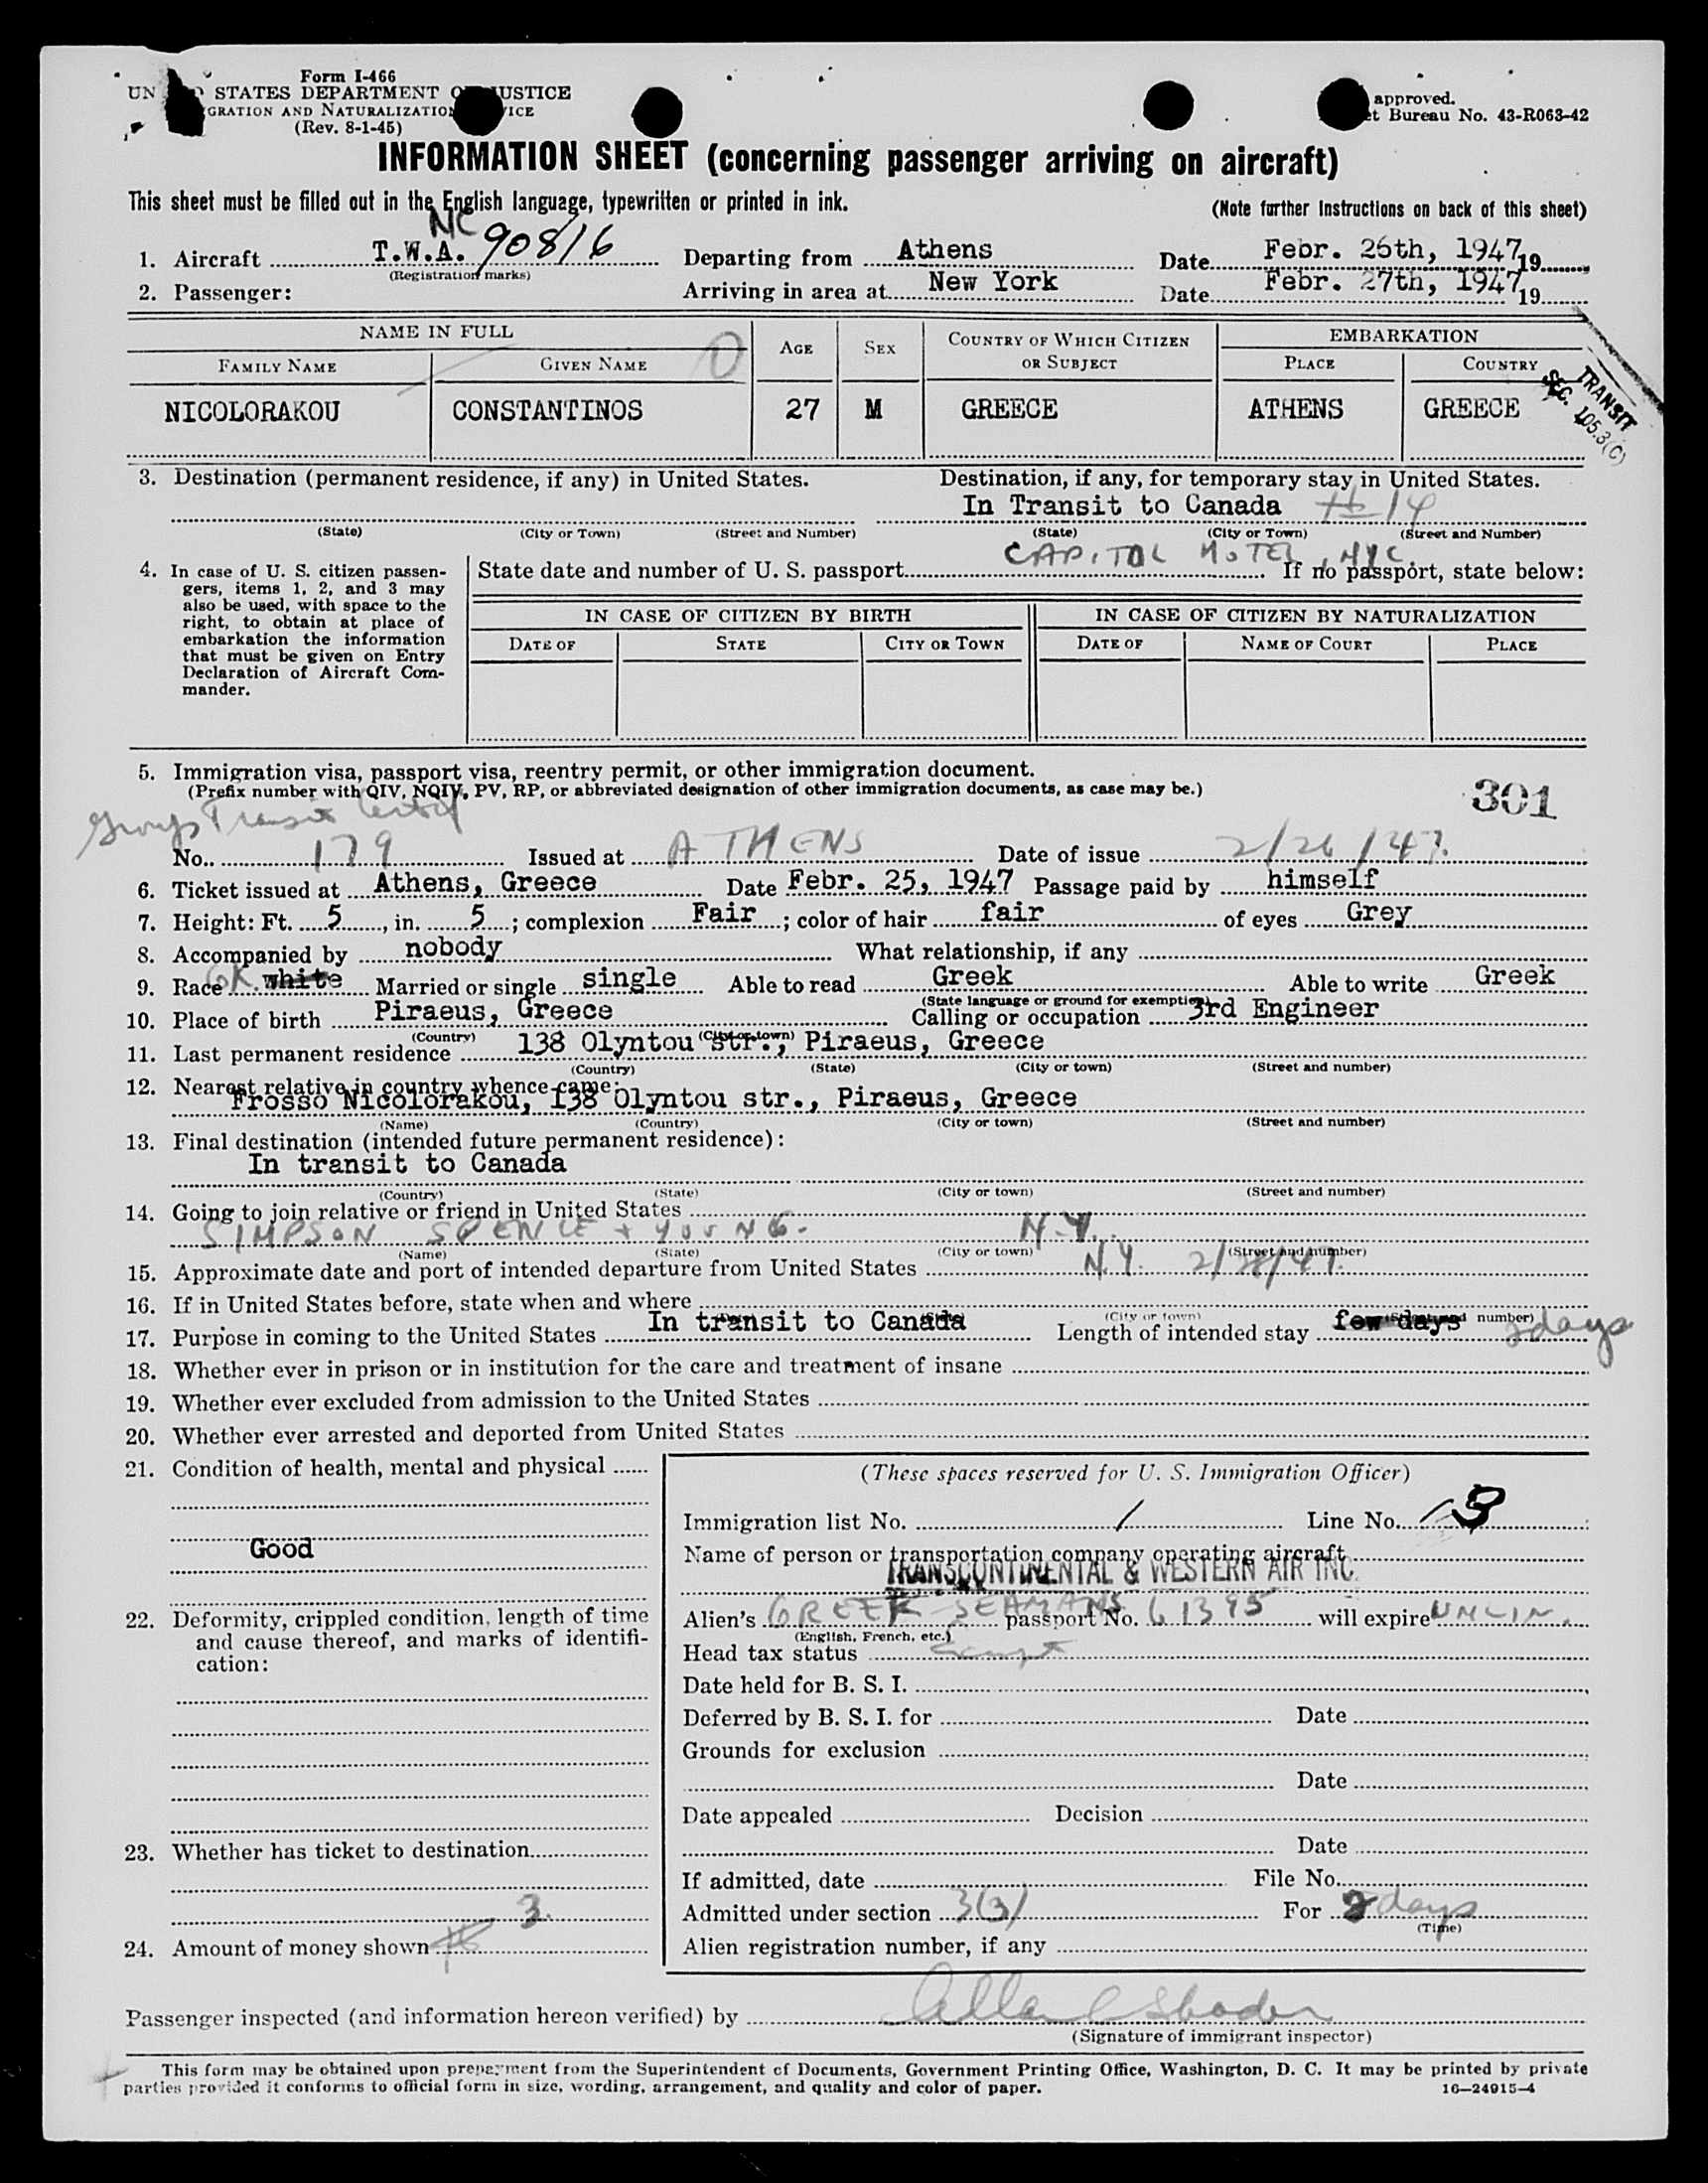 Form I-466
UN STATES DEPARTMENT O USTICE
GRATION AND NATURALIZATIO VICE
(Rev. 8-1-45)
approved.
t Bureau No. 43-R063-42
INFORMATION SHEET (concerning passenger arriving on aircraft)
This sheet must be filled out in the English language, typewritten or printed in ink.
(Note further Instructions on back of this sheet)
1. Aircraft T.W.A. NC 90816 Departing from Athens Date Febr. 26th, 1947, 19
(Registration marks)
2. Passenger: Arriving in area at New York Date Febr. 27th, 1947, 19
NAME IN FULL AGE SEX COUNTRY OF WHICH CITIZEN OR SUBJECT EMBARKATION
FAMILY NAME GIVEN NAME PLACE COUNTRY
TRANSIT
SEC. 105.3(C)
NICOLORAKOU CONSTANTINOS 27 M GREECE ATHENS GREECE
3. Destination (permanent residence, if any) in United States. Destination, if any, for temporary stay in United States.
In Transit to Canada
(State) (City or Town) (Street and Number) (State) (City or Town) (Street and Number)
CAPITOL HOTEL, NYC.
4. In case of U. S. citizen passengers, items 1, 2, and 3 may also be used, with space to the right, to obtain at place of embarkation the information that must be given on Entry Declaration of Aircraft Commander.
State date and number of U. S. passport If no passport, state below:
IN CASE OF CITIZEN BY BIRTH IN CASE OF CITIZEN BY NATURALIZATION
DATE OF STATE CITY OR TOWN DATE OF NAME OF COURT PLACE
5. Immigration visa, passport visa, reentry permit, or other immigration document.
(Prefix number with QIV, NQIV, PV, RP, or abbreviated designation of other immigration documents, as case may be.)
301
Group Transit Certif
No. 179 Issued at ATHENS Date of issue 2/26/47.
6. Ticket issued at Athens, Greece Date Febr. 25, 1947 Passage paid by himself
7. Height: Ft. 5, in. 5; complexion Fair; color of hair fair of eyes Grey
8. Accompanied by nobody What relationship, if any
9. Race GK. white Married or single single Able to read Greek Able to write Greek
(State language or ground for exemption)
10. Place of birth Piraeus, Greece Calling or occupation 3rd Engineer
(Country) (City or town)
11. Last permanent residence 138 Olyntou str., Piraeus, Greece
(Country) (State) (City or town) (Street and number)
12. Nearest relative in country whence came:
Frosso Nicolorakou, 138 Olyntou str., Piraeus, Greece
(Name) (Country) (City or town) (Street and number)
13. Final destination (intended future permanent residence):
In transit to Canada
(Country) (State) (City or town) (Street and number)
14. Going to join relative or friend in United States
SIMPSON SPENCE + YOUNG. N.Y.
(Name) (State) (City or town) (Street and number)
15. Approximate date and port of intended departure from United States N.Y. 2/28/47.
16. If in United States before, state when and where
(City or town) (Street and number)
17. Purpose in coming to the United States In transit to Canada Length of intended stay few days 2 days
18. Whether ever in prison or in institution for the care and treatment of insane
19. Whether ever excluded from admission to the United States
20. Whether ever arrested and deported from United States
21. Condition of health, mental and physical
Good
22. Deformity, crippled condition, length of time and cause thereof, and marks of identification:
23. Whether has ticket to destination
24. Amount of money shown 3.
(These spaces reserved for U. S. Immigration Officer)
Immigration list No. 1 Line No.
Name of person or transportation company operating aircraft
TRANSCONTINENTAL & WESTERN AIR INC.
Alien's GREEK SEAMANS passport No. 61395 will expire UNLIM.
(English, French, etc.)
Head tax status exempt
Date held for B. S. I.
Deferred by B. S. I. for Date
Grounds for exclusion
Date
Date appealed Decision
Date
If admitted, date File No.
Admitted under section 3(3) For 2 days
(Time)
Alien registration number, if any
Passenger inspected (and information hereon verified) by
(Signature of immigrant inspector)
This form may be obtained upon prepayment from the Superintendent of Documents, Government Printing Office, Washington, D. C. It may be printed by private
parties provided it conforms to official form in size, wording, arrangement, and quality and color of paper. 16—24915-4